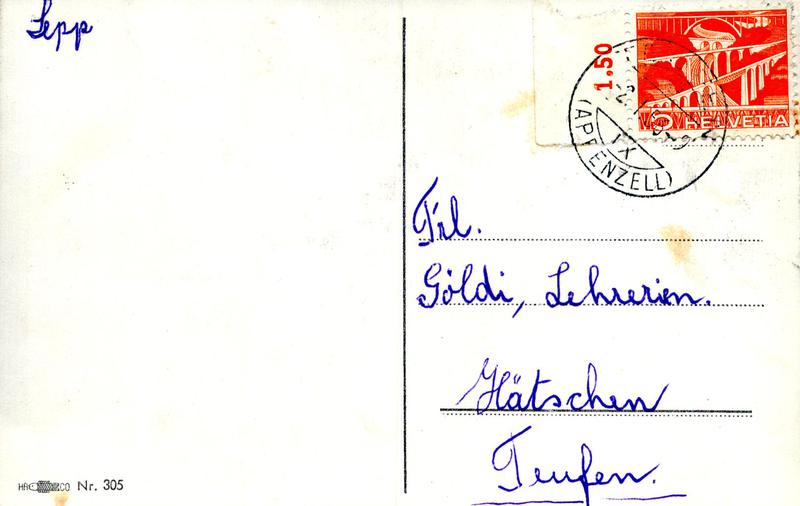 Sepp
1.50
5 HELVETIA
(APPENZELL)
Frl.
Göldi, Lehrerin.
Hätschen
Teufen.
HACO CO Nr. 305